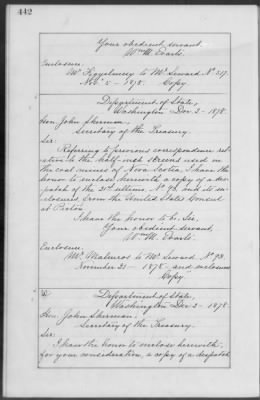 442
Your obedient servant,
Wm. M. Evarts.
Enclosure.
to Mr. Seward No. 517.
Nov. 5 - 1878. Copy
Department of State,
Washington Dec. 2 - 1878.
Hon. John Sherman,
Secretary of the Treasury.
Sir:
Referring to previous correspondence rel-
ative to the half-inch screens used in
the coal mines of Nova Scotia, I have the
honor to enclose herewith a copy of a des-
patch of the 21st ultimo, No. 93, and its en-
closures from the United States Consul
at Pictou.
I have the honor to be, Sir,
Your obedient servant,
Wm. M. Evarts.
Enclosure.
Mr. Malmros to Mr. Seward No. 93.
November 21 - 1878 - and enclosures
Copy
Department of State,
Washington Dec. 2 - 1878.
Hon. John Sherman,
Secretary of the Treasury.
Sir:
I have the honor to enclose herewith,
for your consideration, a copy of a despatch